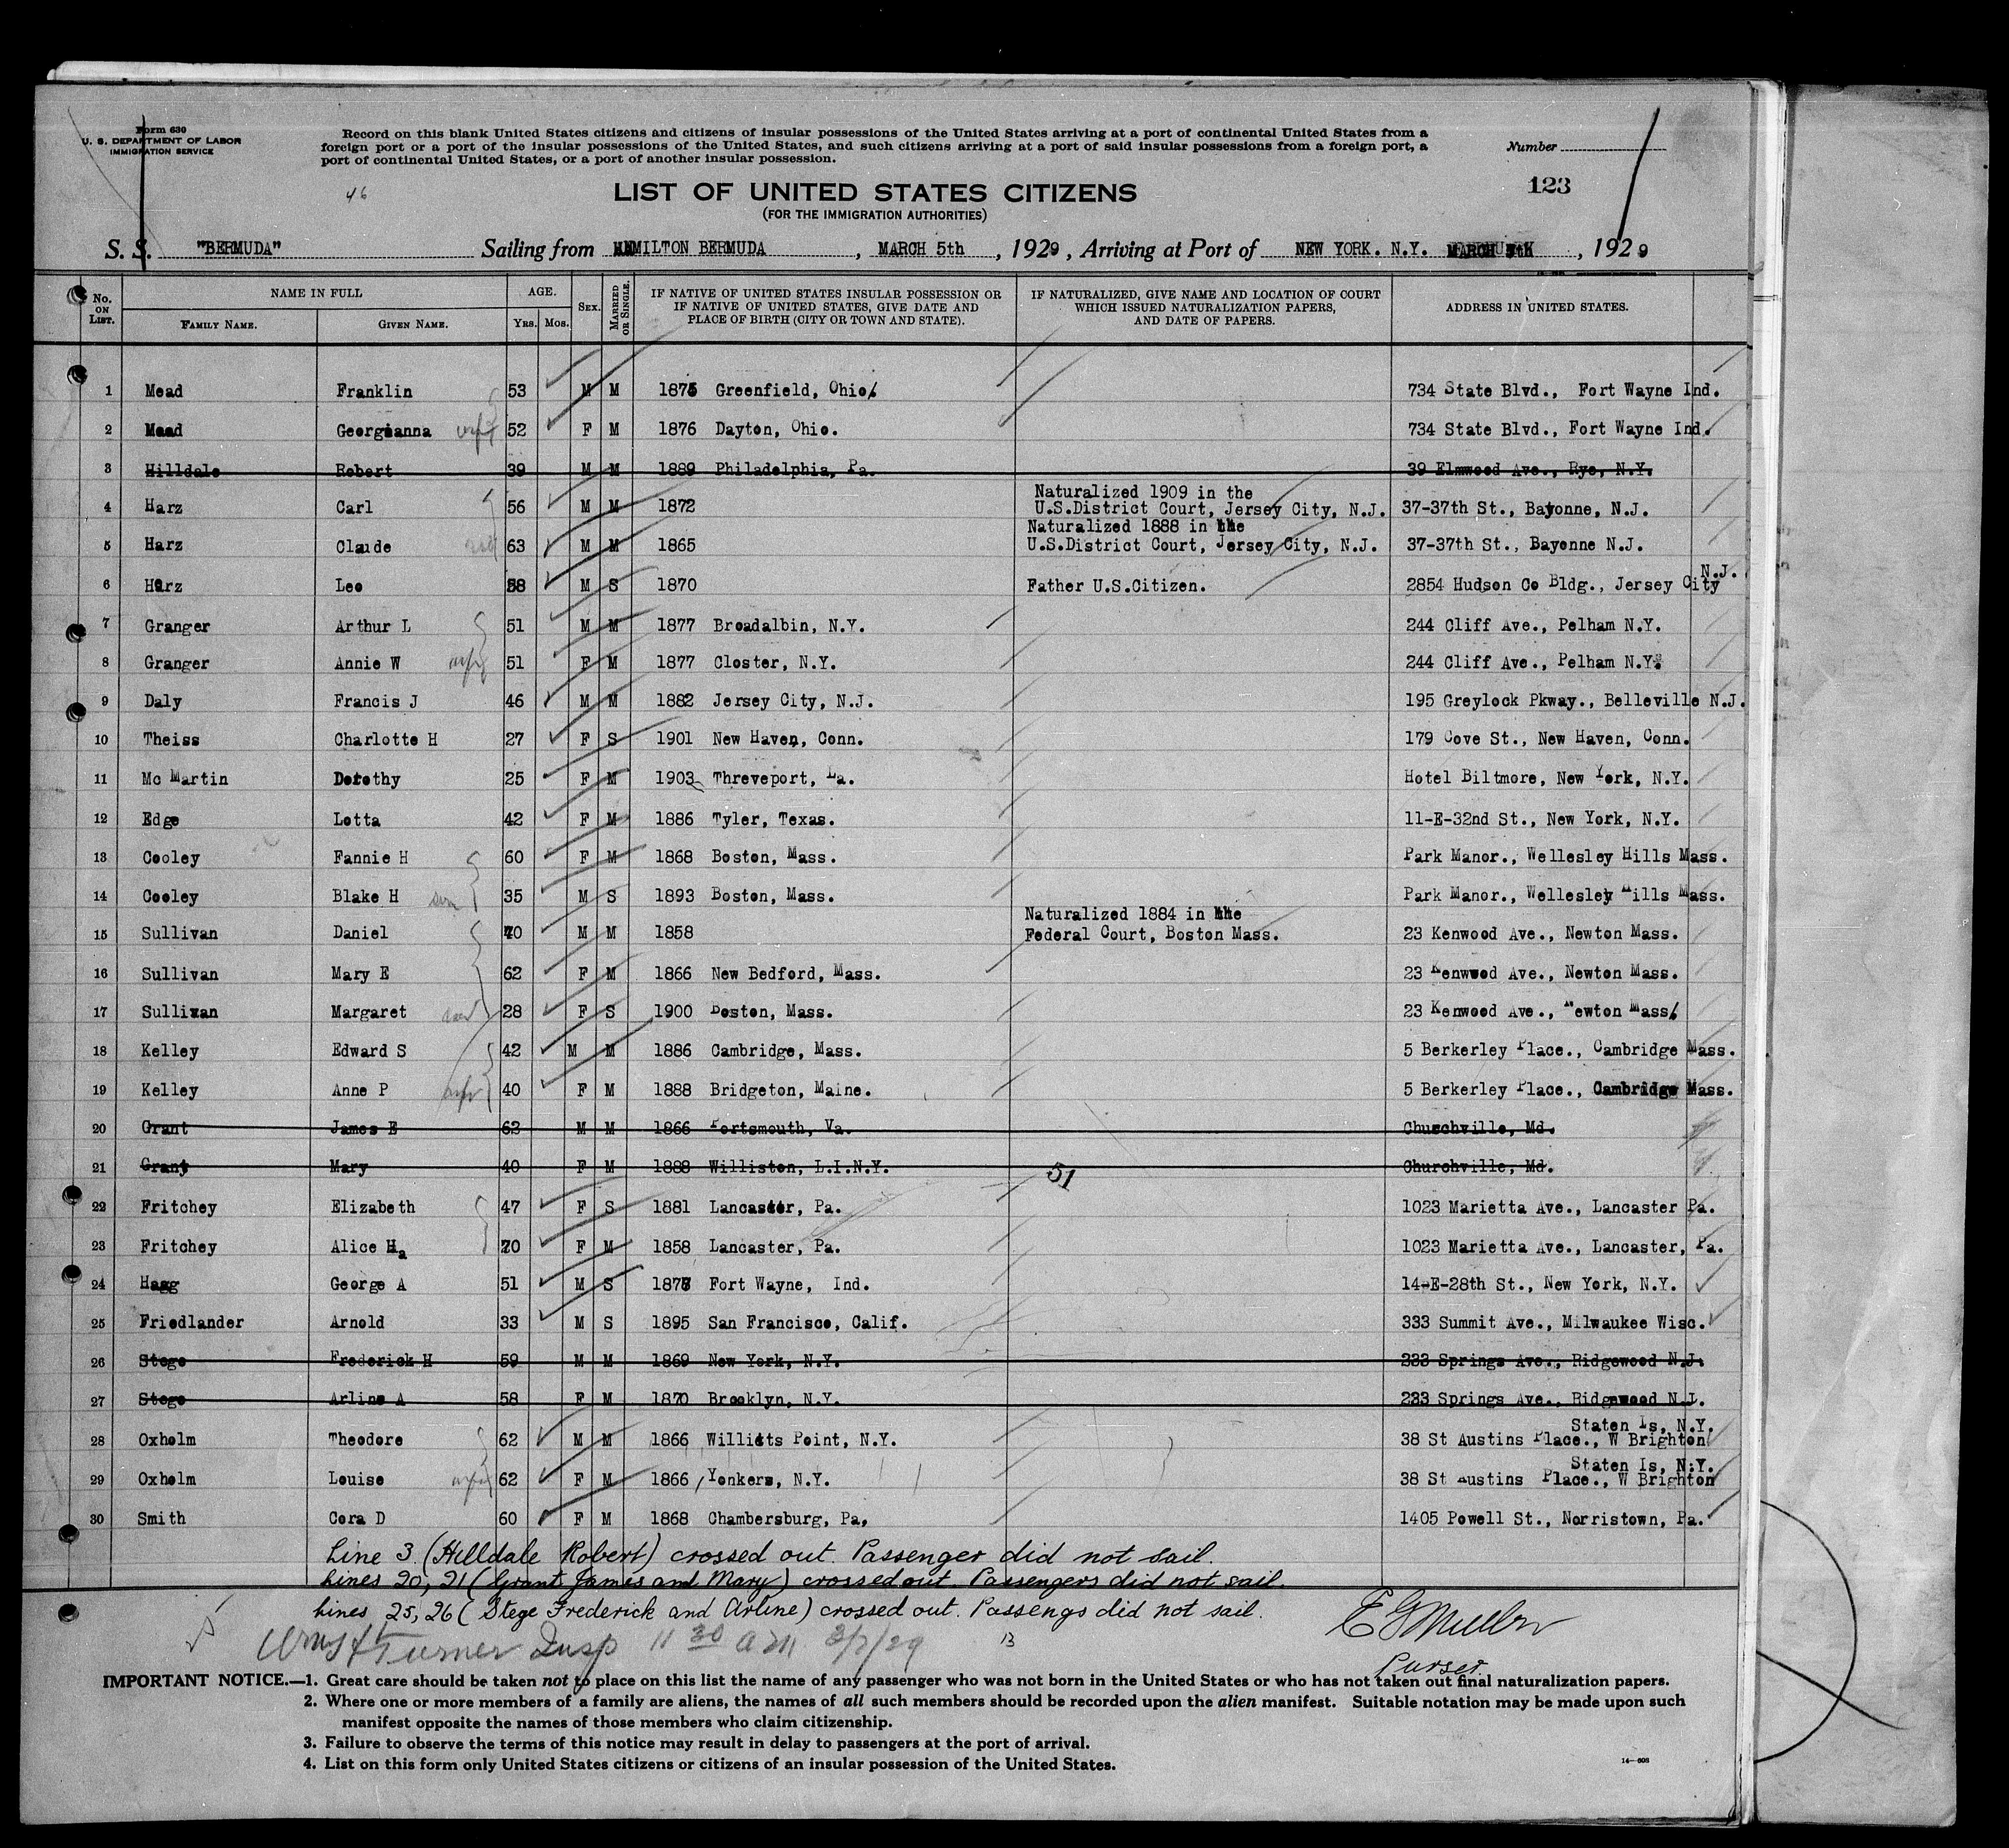 Form 630
U. S. DEPARTMENT OF LABOR
IMMIGRATION SERVICE
Record on this blank United States citizens and citizens of insular possessions of the United States arriving at a port of continental United States from a
foreign port or a port of the insular possessions of the United States, and such citizens arriving at a port of said insular possessions from a foreign port, a
port of continental United States, or a port of another insular possession.
Number
46
123
LIST OF UNITED STATES CITIZENS
(FOR THE IMMIGRATION AUTHORITIES)
S. S. "BERMUDA" Sailing from HAMILTON BERMUDA, MARCH 5th, 1929, Arriving at Port of NEW YORK. N.Y. MARCH 7th, 1929
No. ON LIST. NAME IN FULL FAMILY NAME. GIVEN NAME. AGE. YRS. MOS. SEX. MARRIED OR SINGLE. IF NATIVE OF UNITED STATES INSULAR POSSESSION OR IF NATIVE OF UNITED STATES, GIVE DATE AND PLACE OF BIRTH (CITY OR TOWN AND STATE). IF NATURALIZED, GIVE NAME AND LOCATION OF COURT WHICH ISSUED NATURALIZATION PAPERS, AND DATE OF PAPERS. ADDRESS IN UNITED STATES.
1 Mead Franklin 53 M M 1875 Greenfield, Ohio. 734 State Blvd., Fort Wayne Ind.
2 Mead Georgianna wife 52 F M 1876 Dayton, Ohio. 734 State Blvd., Fort Wayne Ind.
3 Hilldale Robert 39 M M 1889 Philadelphia, Pa. 39 Elmwood Ave., Rye, N.Y.
4 Harz Carl 56 M M 1872 Naturalized 1909 in the U.S.District Court, Jersey City, N.J. 37-37th St., Bayonne, N.J.
5 Harz Claude 63 M M 1865 Naturalized 1888 in the U.S.District Court, Jersey City, N.J. 37-37th St., Bayonne N.J.
6 Harz Leo 58 M S 1870 Father U.S.Citizen. 2854 Hudson Co Bldg., Jersey City N.J.
7 Granger Arthur L 51 M M 1877 Broadalbin, N.Y. 244 Cliff Ave., Pelham N.Y.
8 Granger Annie W wife 51 F M 1877 Closter, N.Y. 244 Cliff Ave., Pelham N.Y.
9 Daly Francis J 46 M M 1882 Jersey City, N.J. 195 Greylock Pkway., Belleville N.J.
10 Theiss Charlotte H 27 F S 1901 New Haven, Conn. 179 Cove St., New Haven, Conn.
11 Mc Martin Dorothy 25 F M 1903 Threveport, La. Hotel Biltmore, New York, N.Y.
12 Edge Lotta 42 F M 1886 Tyler, Texas. 11-E-32nd St., New York, N.Y.
13 Cooley Fannie H 60 F M 1868 Boston, Mass. Park Manor., Wellesley Hills Mass.
14 Cooley Blake H son 35 M S 1893 Boston, Mass. Park Manor., Wellesley Hills Mass.
15 Sullivan Daniel 70 M M 1858 Naturalized 1884 in the Federal Court, Boston Mass. 23 Kenwood Ave., Newton Mass.
16 Sullivan Mary E 62 F M 1866 New Bedford, Mass. 23 Kenwood Ave., Newton Mass.
17 Sullivan Margaret 28 F S 1900 Boston, Mass. 23 Kenwood Ave., Newton Mass.
18 Kelley Edward S 42 M M 1886 Cambridge, Mass. 5 Berkerley Place., Cambridge Mass.
19 Kelley Anne P wife 40 F M 1888 Bridgeton, Maine. 5 Berkerley Place., Cambridge Mass.
20 Grant James E 62 M M 1866 Portsmouth, Va. Churchville, Md.
21 Grant Mary 40 F M 1888 Williston, L.I.N.Y. Churchville, Md.
51
22 Fritchey Elizabeth 47 F S 1881 Lancaster, Pa. 1023 Marietta Ave., Lancaster Pa.
23 Fritchey Alice Ha 70 F M 1858 Lancaster, Pa. 1023 Marietta Ave., Lancaster, Pa.
24 Hagg George A 51 M S 1877 Fort Wayne, Ind. 14-E-28th St., New York, N.Y.
25 Friedlander Arnold 33 M S 1895 San Francisco, Calif. 333 Summit Ave., Milwaukee Wisc.
26 Stege Frederick H 59 M M 1869 New York, N.Y. 233 Springs Ave., Ridgewood N.J.
27 Stege Arline A 58 F M 1870 Brooklyn, N.Y. 233 Springs Ave., Ridgewood N.J.
28 Oxholm Theodore 62 M M 1866 Willitts Point, N.Y. 38 St Austins Place., W Brighton Staten Is, N.Y.
29 Oxholm Louise wife 62 F M 1866 Yonkers, N.Y. 38 St Austins Place., W Brighton Staten Is, N.Y.
30 Smith Cora D 60 F M 1868 Chambersburg, Pa, 1405 Powell St., Norristown, Pa.
Line 3 (Hilldale Robert) crossed out. Passenger did not sail.
Lines 20, 21 (Grant James and Mary) crossed out. Passengers did not sail.
Lines 25, 26 (Stege Frederick and Arline) crossed out. Passengs did not sail.
E G Muller
Purser
Turner Insp 11 30 AM 3/7/29
13
IMPORTANT NOTICE.—1. Great care should be taken not to place on this list the name of any passenger who was not born in the United States or who has not taken out final naturalization papers.
2. Where one or more members of a family are aliens, the names of all such members should be recorded upon the alien manifest. Suitable notation may be made upon such
manifest opposite the names of those members who claim citizenship.
3. Failure to observe the terms of this notice may result in delay to passengers at the port of arrival.
4. List on this form only United States citizens or citizens of an insular possession of the United States.
14—608